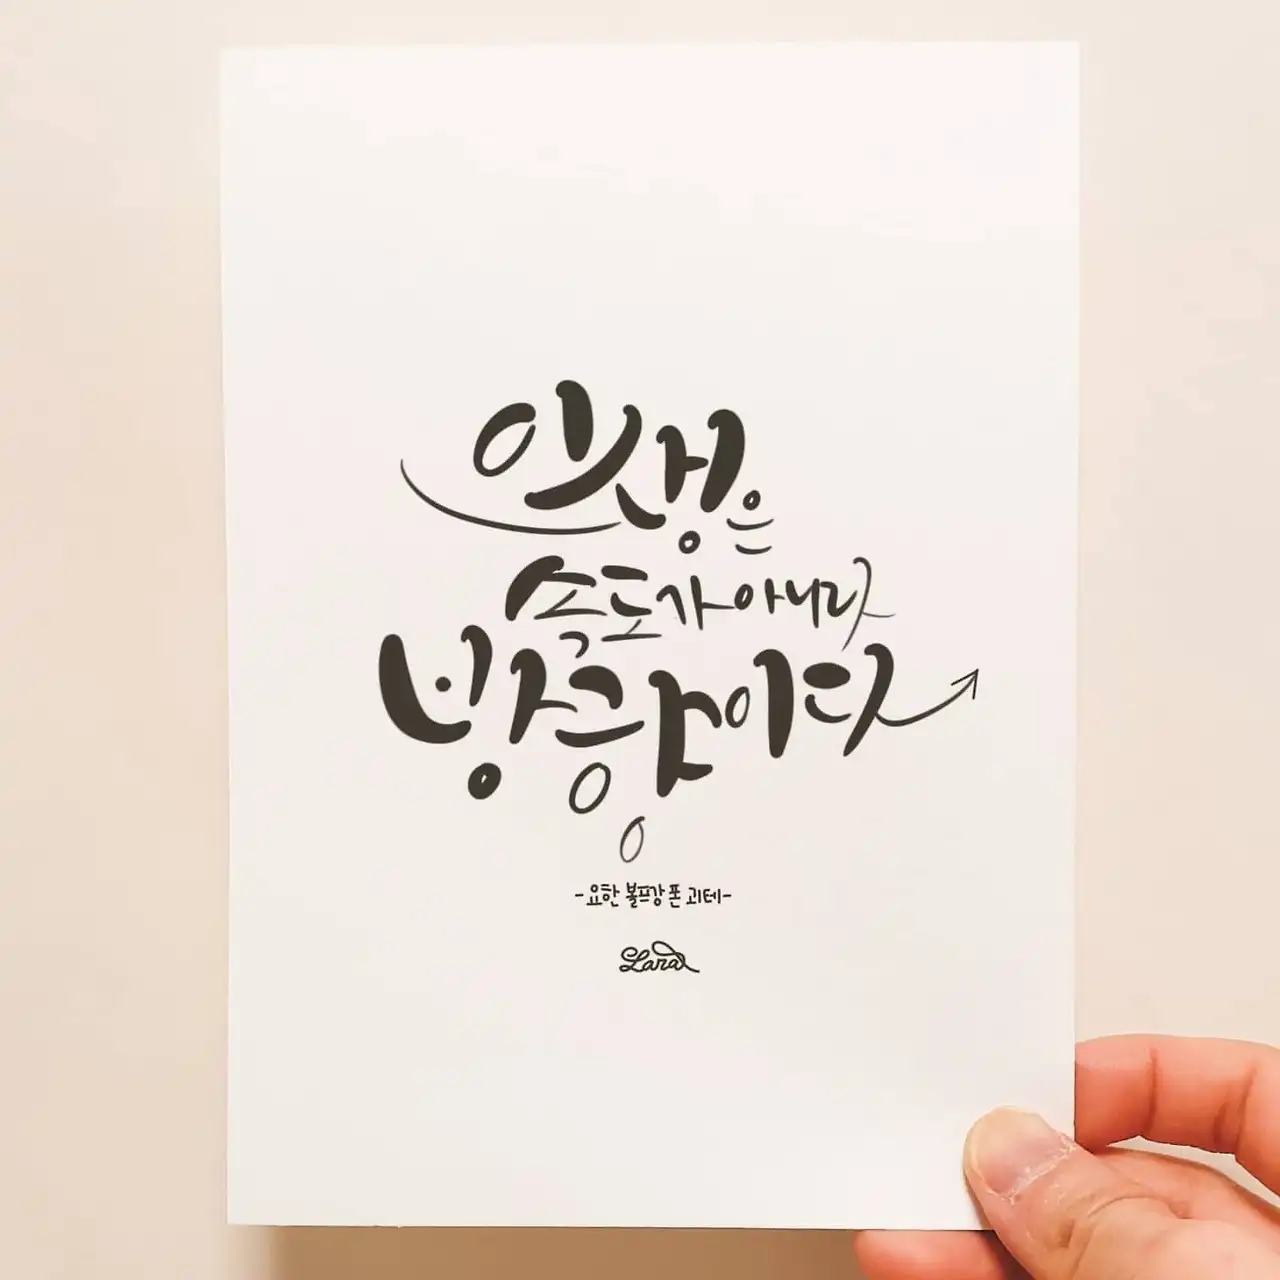 인생은
속도가 아니라
방향이다
-요한 볼프강 폰 괴테-
Lara